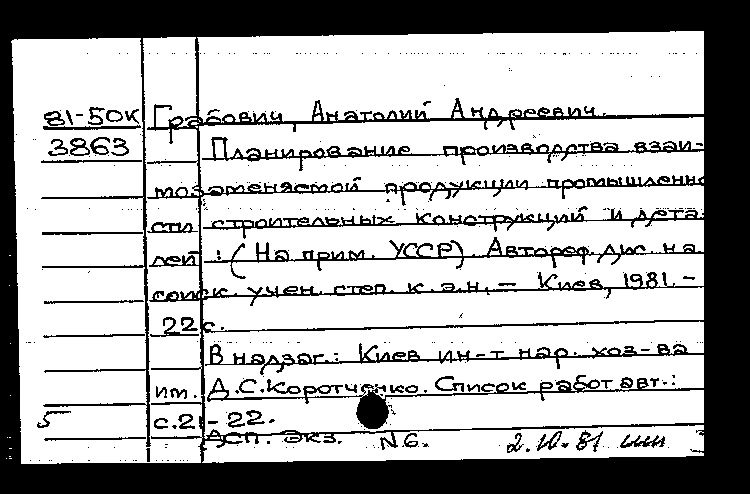 81-50К Грабович, Анатолий Андреевич.
3863 Планирование производства взаи-
мозаменяемой продукции промышленно
сти строительных конструкций и дета-
лей : (На прим. УССР). Автореф. дис. на
соиск. учен. степ. к. э. н. – Киев, 1981. –
22 с.
В надзаг.: Киев ин-т нар. хоз-ва
им. Д.С. Коротченко. Список работ авт.:
5 с. 21-22.
Дсп. экз. N6. 2.10.81